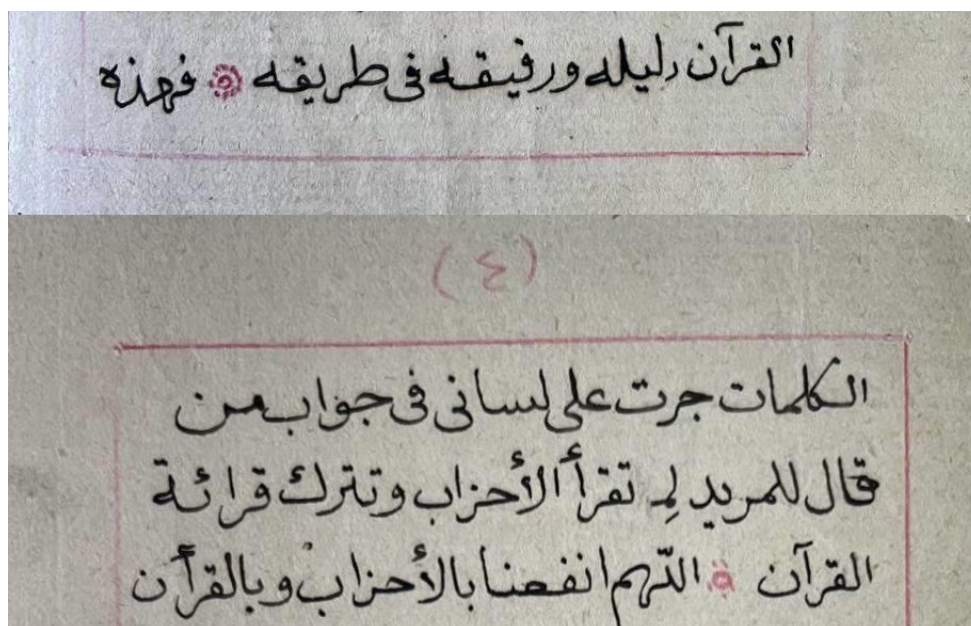 القرآن دليله ورفيقه فى طريقه ۞ فهذه
(٤)
الكلمات جرت على لسانى فى جواب من
قال للمريد لِمَ تقرأ الأحزاب وتترك قرائة
القرآن ۞ اللّهم انفعنا بالأحزاب وبالقرأن